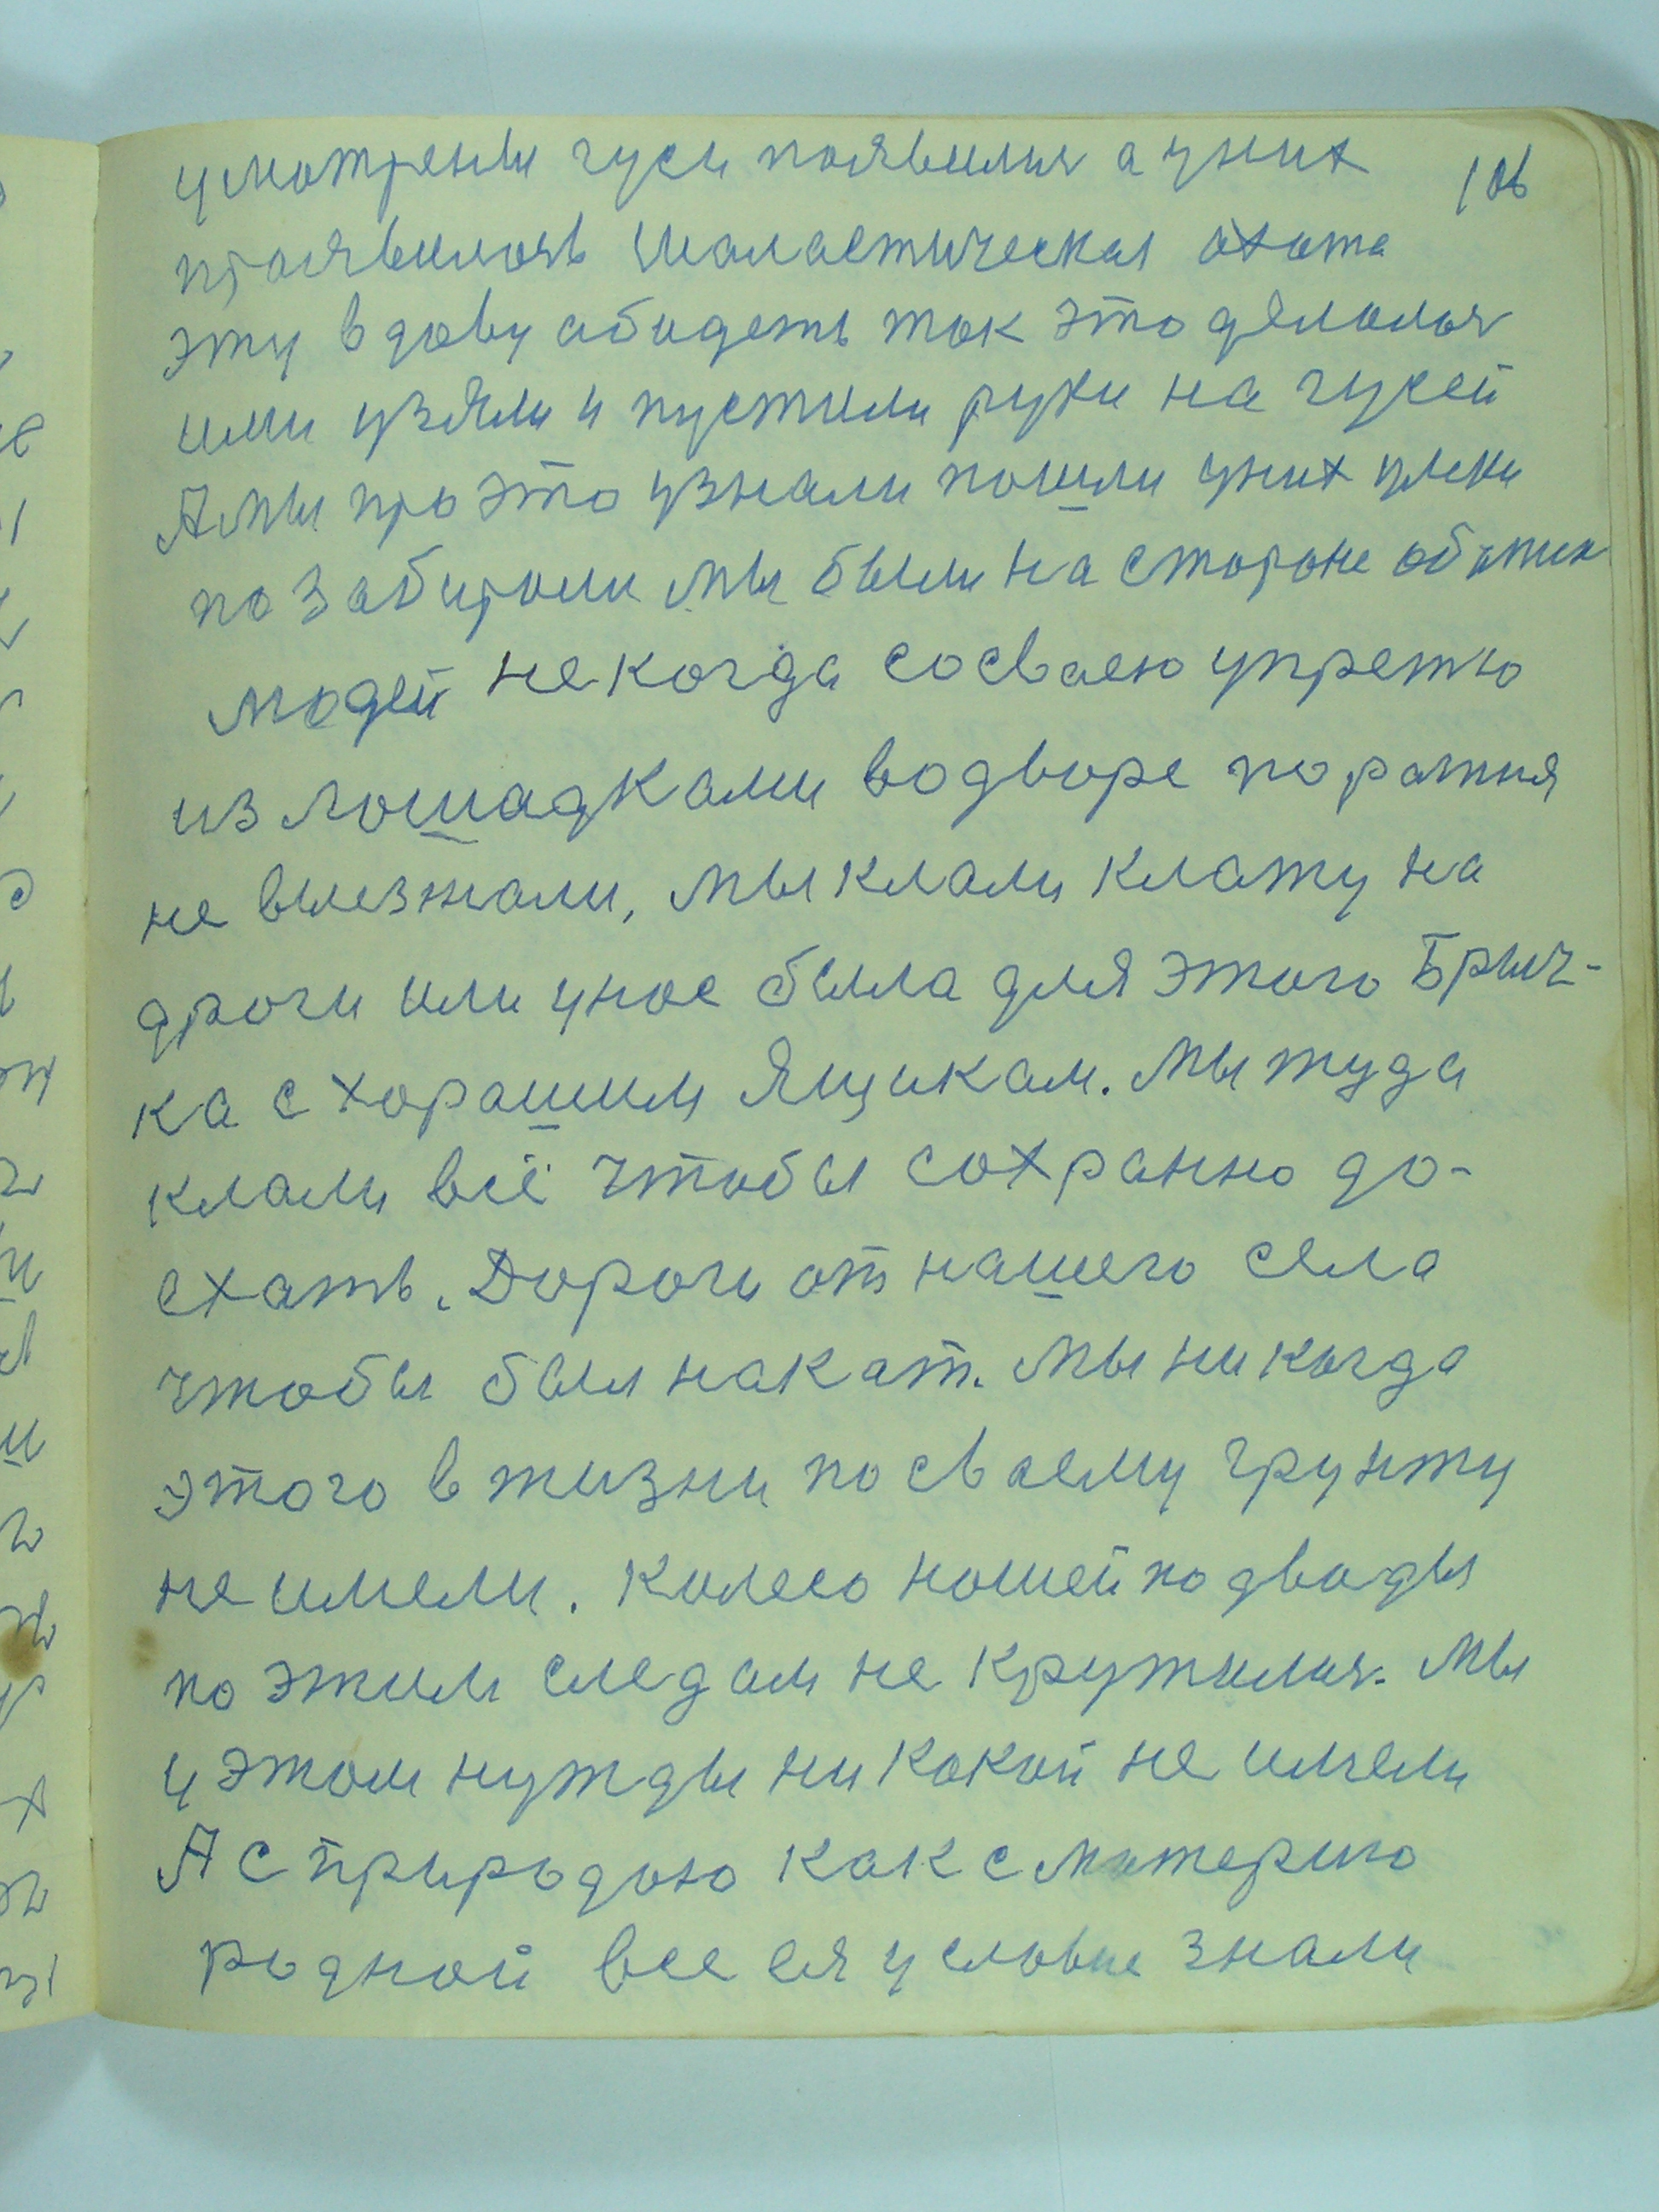 у мотрены гуси появился а у них 106
проявилось шаластическая охота
эту вдову абидеть так это делолся
ими узяли и пустили руки на гусей
А мы про это узнали пошли у них
позабирали мы были на стороне
людей не когда сосваею упретю
из лошадками водворе по ратня
не выезжали, мы клали клажу на
дроги или унас была для этого Брич-
ка с хорашим ящикам. Мы туда
клали всё чтобы сохранно до-
ехать. Дороги от нашего села
чтобы был накат. Мы ни когда
этого в жизни по сваему грунту
не имели. Колесо ношей по двады
по этим следам не крутилося. Мы
у этом нужды ни какой не имели
А с природою как с материю
родной все ея условие знали